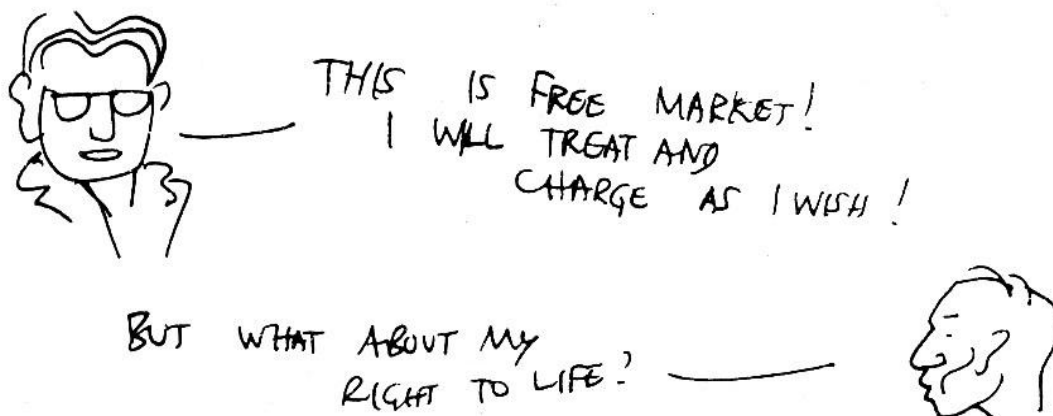 THIS IS FREE MARKET!
I WILL TREAT AND
CHARGE AS I WISH!
BUT WHAT ABOUT MY
RIGHT TO LIFE?